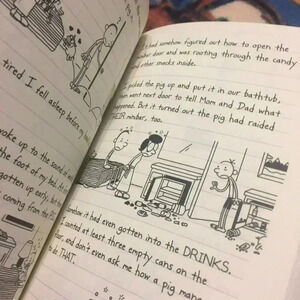 tired I fell asleep before my
woke up to the sound of
the foot of my bed.
gotten up early, but
coming from the
had somehow figured out how to open the
minibar door and was rooting through the candy
and other snacks inside.
picked the pig up and put it in our bathtub,
then went next door to tell Mom and Dad what
happened. But it turned out the pig had raided
THEIR minibar, too.
Somehow it had even gotten into the DRINKS.
I counted at least three empty cans on the
floor, and don't even ask me how a pig
to do THAT.